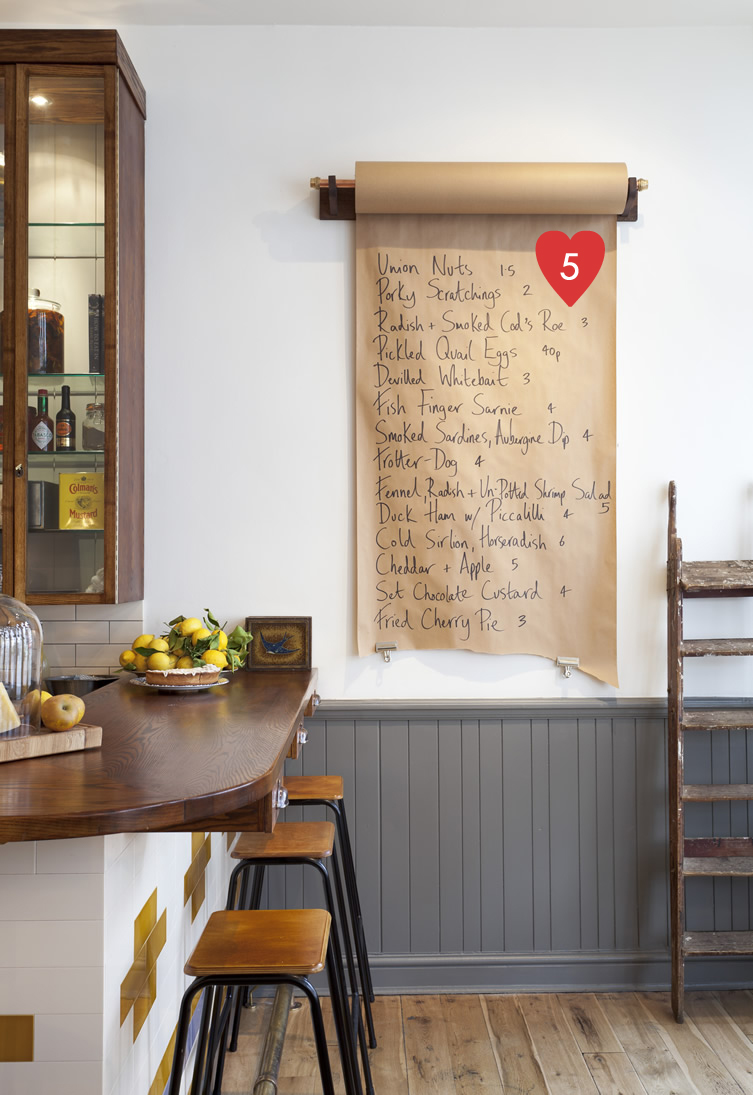 5
Union Nuts 1.5
Porky Scratchings 2
Radish + Smoked Cod's Roe 3
Pickled Quail Eggs 40p
Devilled Whitebait 3
Fish Finger Sarnie 4
Smoked Sardines, Aubergine Dip 4
Trotter-Dog 4
Fennel, Radish + Un-Potted Shrimp Salad 5
Duck Ham w/ Piccalilli 4
Cold Sirlion, Horseradish 6
Cheddar + Apple 5
Set Chocolate Custard 4
Fried Cherry Pie 3
TABASCO
Colman's
Mustard